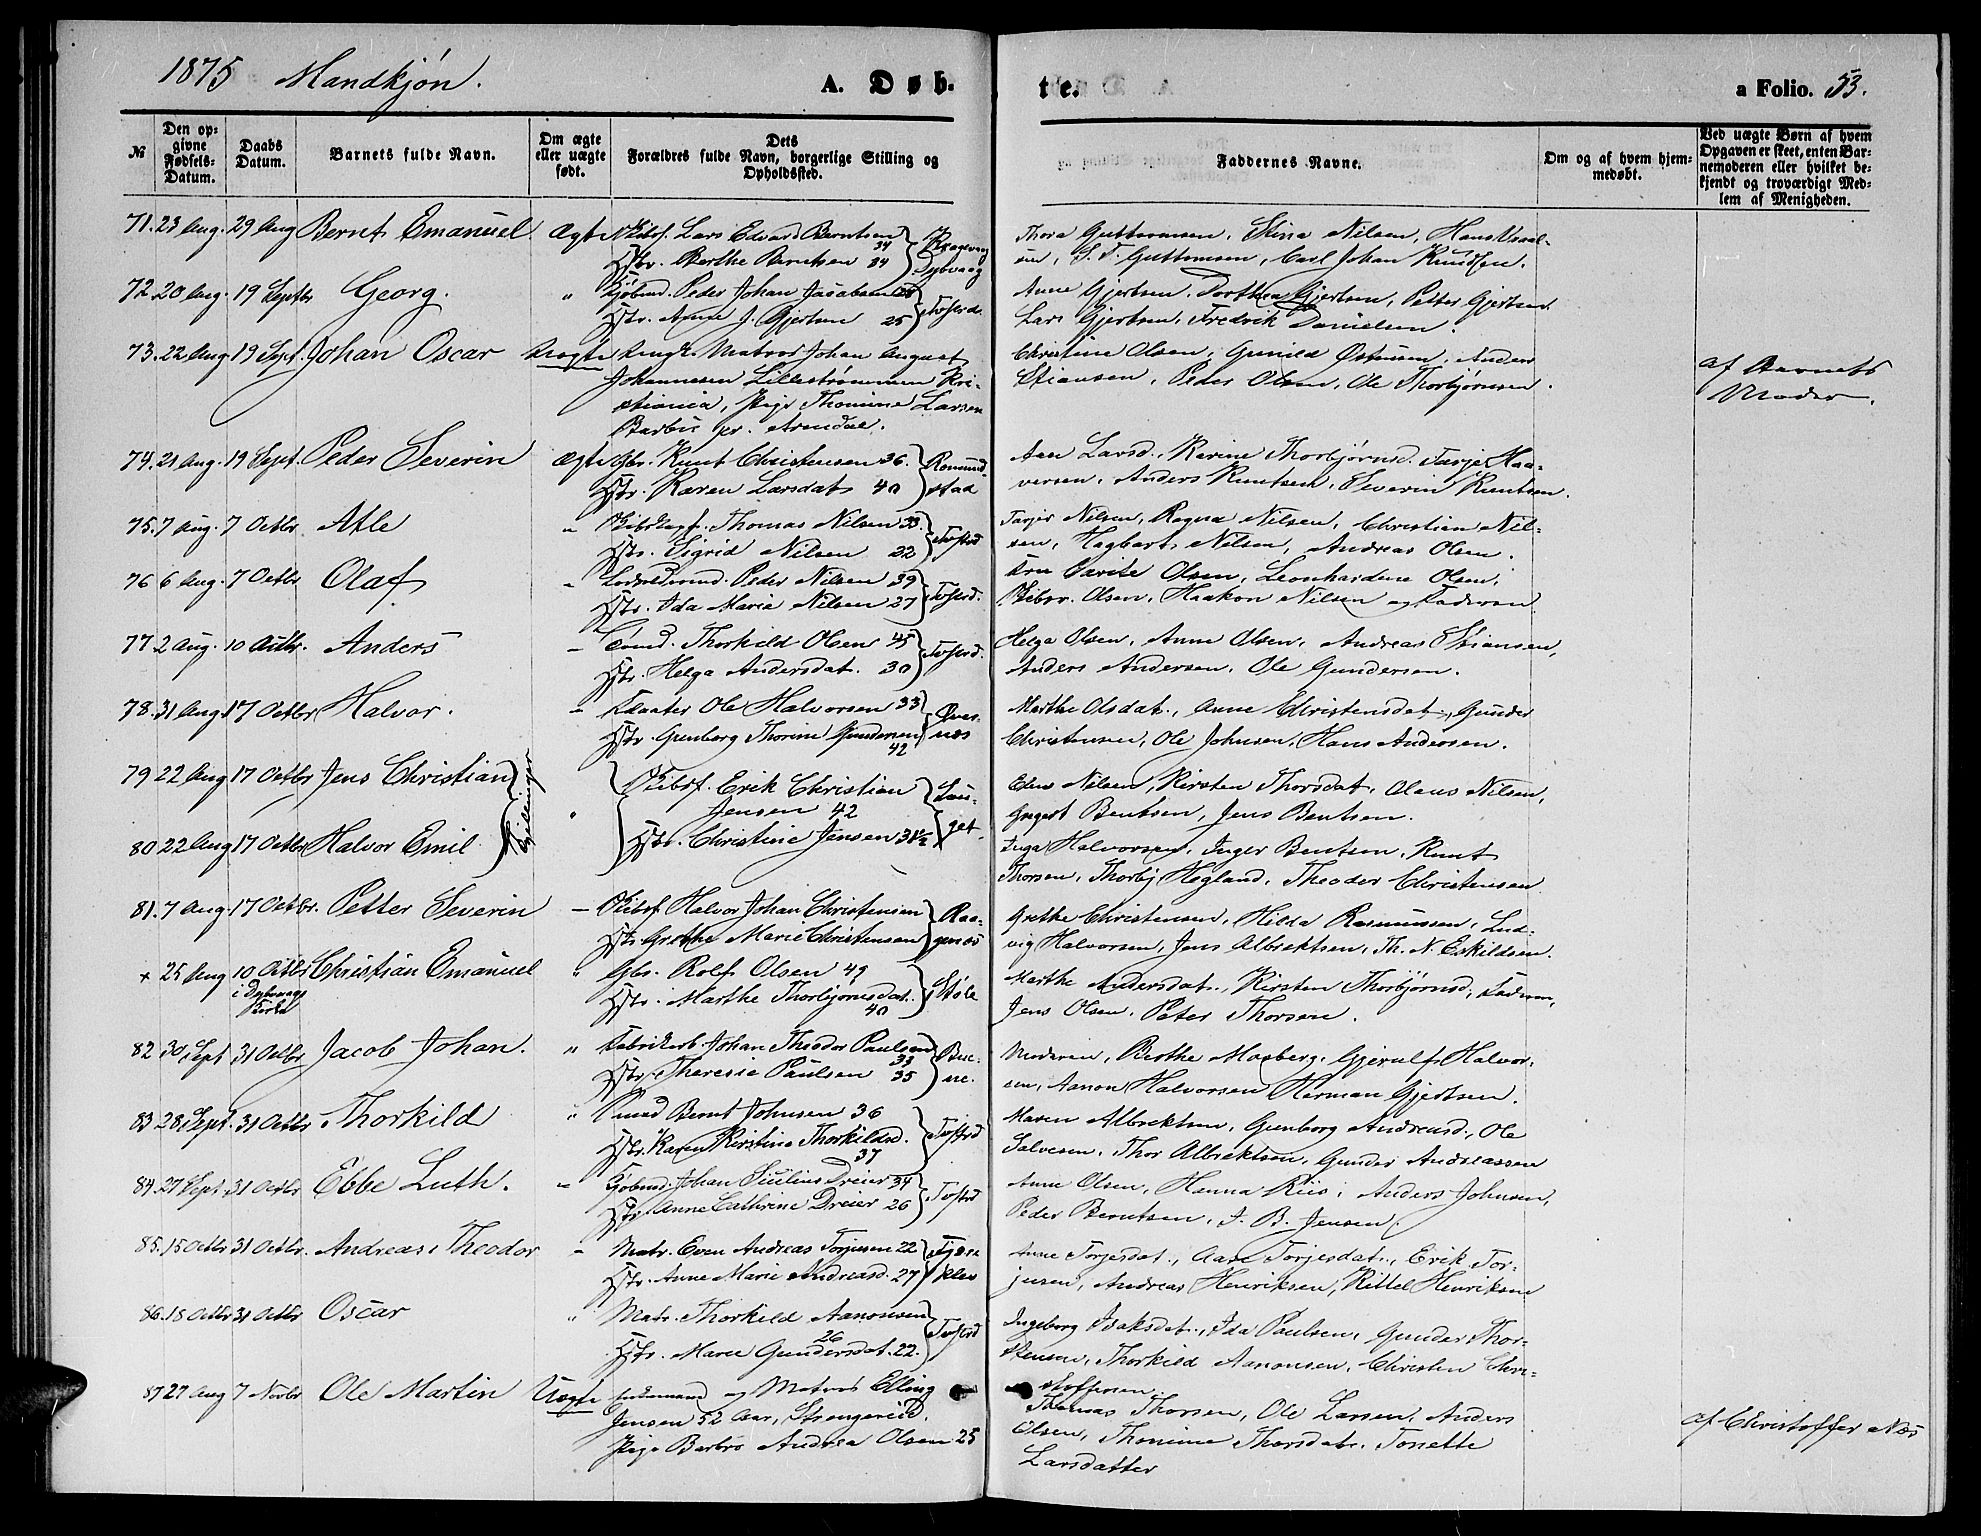 1875 Mandkjøn.
A. Døb-
te.
a Folio. 53.
№
Den op-
givne
Fødsels-
Datum.
Daabs
Datum.
Barnets fulde Navn.
Om ægte
eller uægte
født.
Dets
Forældres fulde Navn, borgerlige Stilling og
Opholdssted.
Faddernes Navne.
Om og af hvem hjem-
medøbt.
Ved uægte Børn af hvem
Opgaven er skeet, enten Bar-
nemoderen eller hvilket be-
kjendt og troværdigt Med-
lem af Menigheden.
71. 23 Aug. 29 Aug Bernt Emanuel Ægte Skibsf. Lars Edvard Berntsen 34
Hstr. Berthe Berntsen 34
Dybvaag
Thora Guttormsen, Stina Nilsen, Hans
S. T. Guttormsen, Carl Johan Knudsen.
72. 20 Aug. 19 Septbr Georg. " Peder Johan Jacobsen
Hstr. Anne J. Gjertsen 25
Tvstrd.
Anne Gjertsen, Dorthea Gjertsen, Petter Gjertsen
Lars Gjertsen, Fredrik Danielsen.
73. 22 Aug. 19 Sept. Johan Oscar Uægte Ungk. Matros Johan August
Johannesen Lillestrømmen Kri-
stiania, Pige Thomine Larsen
Barbu pr. Arendal.
Christine Olsen, Gunild Østensen, Anders
Stiansen, Peder Olsen, Ole Thorbjørnsen.
af Barnets
Moder.
74. 21 Aug. 19 Sept. Peder Severin Ægte Gbr. Knut Christensen 36.
Hstr. Karen Larsdat. 40
Romund-
stad
Aase Larsd. Karine Thorbjørnsd. Tarjei Haa-
versen, Anders Knutsen, Severin Knutsen.
75. 7 Aug. 7 Octbr Atle " Thomas Nilsen 33.
Hstr. Sigrid Nilsen 22
Tvstrd
Tarjei Nilsen, Ragna Nilsen, Christian Nil-
sen, Hagbart Nilsen, Andreas Olsen.
76 6 Aug. 7 Octbr Olaf " Peder Nilsen 39
Hstr. Ida Maria Nilsen 27
Tvstrd.
Fru Olsen, Leonhardine Olsen,
Olsen, Haakon Nilsen og Faderen
77 2 Aug. 10 Octbr. Anders " Sømd. Thorkild Olsen 45
Hstr. Helga Andersdat. 30
Tvstrd.
Helga Olsen, Anne Olsen, Andreas Stiansen,
Anders Andersen, Ole Gundersen.
78. 31 Aug. 17 Octbr Halvor. " Ole Halvorsen 33
Hstr. Gunborg Thorine Gundersen 42
Øver-
næs
Marthe Olsdat., Anne Christensdat., Gunder
Christensen, Ole Johnsen, Hans Andersen.
79 22 Aug 17 Octbr Jens Christian
Tvillinger
" Skibsf. Erik Christian
Jensen 42
Hstr. Christine Jensen 31½
Lau-
get.
Elene Nilsen, Kirsten Thorsdat., Olaus Nilsen,
Bentsen, Jens Bentsen.
80 22 Aug 17 Octbr Halvor Emil
Inga Halvorsen, Inger Bentsen, Knut
Thorsen, Thorbj Hegland, Theodor Christensen
81. 7 Aug 17 Octbr. Petter Severin " Skibsf Halvor Johan Christensen
Hstr. Grethe Marie Christensen
Raa-
genæs
Grethe Christensen, Hilda Rasmussen, Lud-
vig Halvorsen, Jens Albrektsen, Th. N. Eskildsen.
+ 25 Aug 10 Octbr Christian Emanuel " Gbr. Rolf Olsen 49
i Dybvaags
Kirke
Hstr. Marthe Thorbjørnsdat. 40
Støle
Marthe Andersdat., Kirsten Thorbjørnsd., Faderen,
Jens Olsen, Peter Thorsen.
82 30 Sept 31 Octbr Jacob Johan. " Johan Theodor Paulsen 33
Hstr. Theresie Paulsen 35
Bue-
ne.
Moderen, Berthe Mosberg, Gjerulf Halvor-
sen, Aanon Halvorsen Herman Gjertsen.
83 28 Sept. 31 Octbr Thorkild " Bernt Johnsen 36
Hstr. Karen Kirstine Thorkildsd. 37
Tvstrd
Maren Albrektsen, Gunborg Andreasd., Ole
Salvesen, Thor Albrektsen, Gunder Andreassen
84 27 Sept. 31 Octbr Ebbe Luth. " Johan Julius Dreier 34
Hstr. Anne Cathrine Dreier 26
Tvstrd
Anne Olsen, Hanna Riis, Anders Johnsen,
Peder Berntsen, J. B. Jensen.
85. 15 Octbr 31 Octbr. Andreas Theodor " Matr. Even Andreas Torjusen 22
Hstr. Anne Marie Andreasd. 27
klev
Anne Torjesdat., Aase Torjesdat., Erik Tor-
jusen, Andreas Henriksen, Kittel Henriksen
86. 18 Octbr 31 Octbr Oscar " Matr. Thorkild Aanonsen 26
Hstr. Maren Gundersdat. 22.
Tvstrd
Ingeborg Isaksdat., Ida Paulsen, Gunder Thor-
stensen, Thorkild Aanonsen, Christen Chri-
stoffersen.
87 27 Aug 7 Novbr Ole Martin Uægte Enkemand og Matros Elling
Jensen 52 Aar, Strengereid.
Pige Barbro Andrea Olsen 25
Thomas Thorsen, Ole Larsen, Anders
Olsen, Thomine Thorsdat., Tonette
Larsdatter
af Christoffer Næs